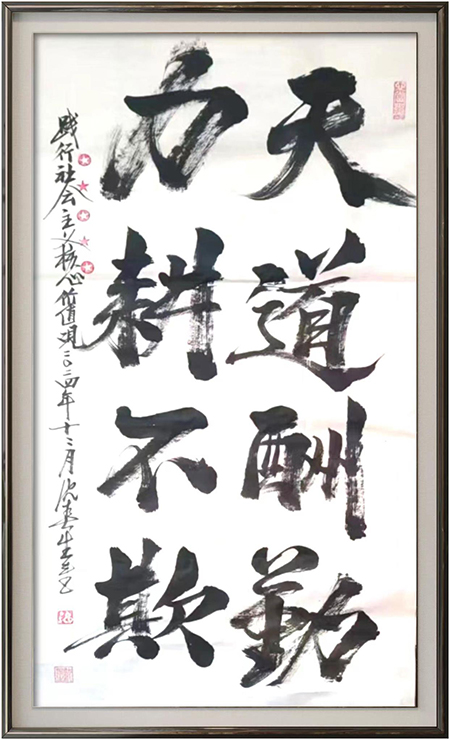 天道酬勤
力耕不欺
践行社会主义核心价值观二〇二四年十二月